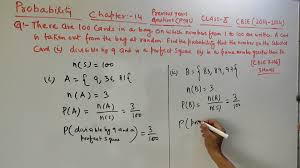 Probability Chapter:-14 Previous year question (PYQs) CLASS-X CBSE (2014-2024)
Q:- There are 100 cards in a bag on which numbers from 1 to 100 are written. A card
is taken out from the bag at random. Find the probability that the number on the selected
card (i) divisible by 9 and is a perfect square (ii) is a prime number greater than 80.
n(s) = 100
(i) A = { 9, 36, 81 {
n(s) = 3
P(A) = n(A) / n(s) = 3/100
P( divisible by 9 and a perfect square ) = 3/100
(ii) B = { 83, 89, 97 }
n(B) = 3
P(B) = n(B) / n(s) = 3/100
P(